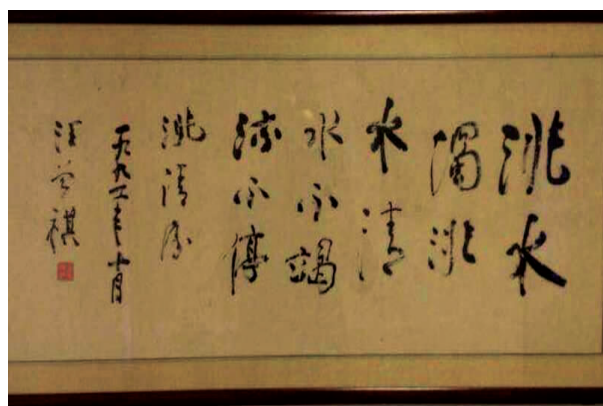 洮水
濁洮
水清
水不竭
流不停
洮清
一九九一年十月
汪曾祺